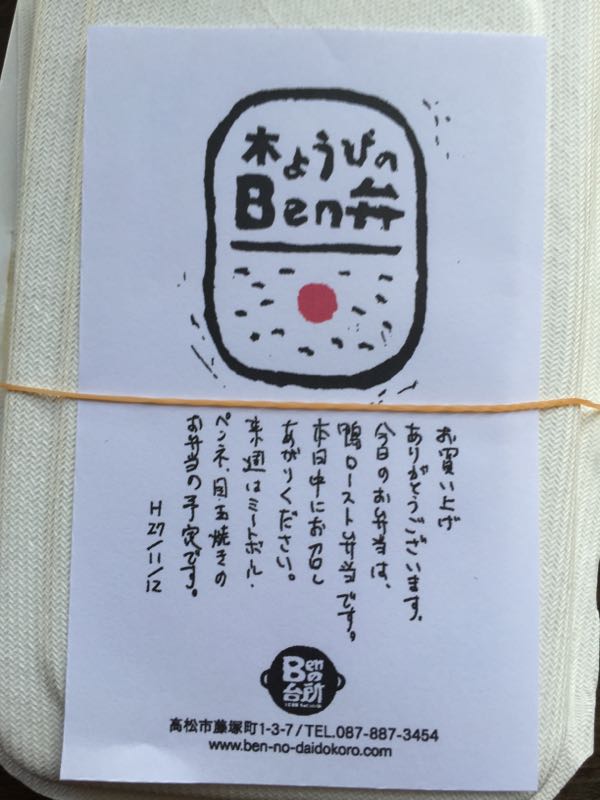 木ようびの
Ben弁
お買い上げ
ありがとうございます。
今日のお弁当は、
鴨ロースト弁当です。
本日中にお召し
あがりください。
来週はミートボール・
ペンネ、目玉焼きの
お弁当の予定です。
H27/11/12
Benの
台所
高松市藤塚町1-3-7/TEL.087-887-3454
www.ben-no-daidokoro.com